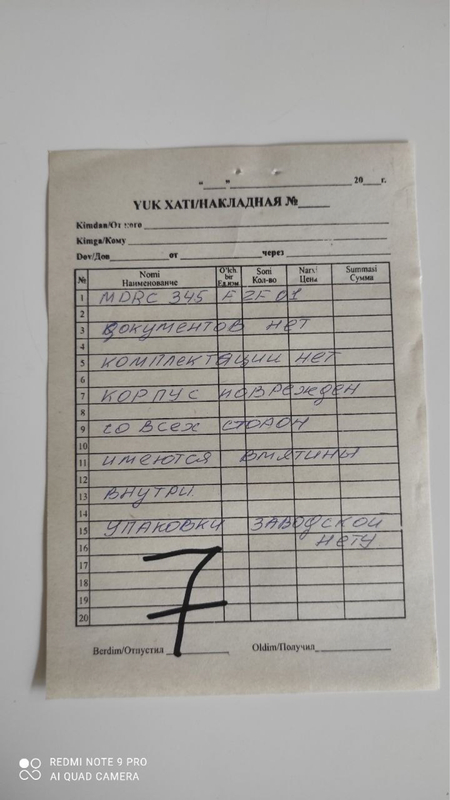 " " 20 г.
YUK XATI/НАКЛАДНАЯ №
Kimdan/От кого
Kimga/Кому
Dov/Дов от через
№ Nomi Наименование O'lch. bir Ед.изм. Soni Кол-во Narx/ Цена Summasi Сумма
1 MDRC 345 F ZF 01
2
3 Документов нет
4
5 комплектации нет
6
7 корпус поврежден
8
9 со всех стоāон
10
11 имеются вмятины
12
13 внутри.
14
15 упаковки заводской
16 нету
17
18
19
20
7
Berdim/Отпустил Oldim/Получил
REDMI NOTE 9 PRO
AI QUAD CAMERA